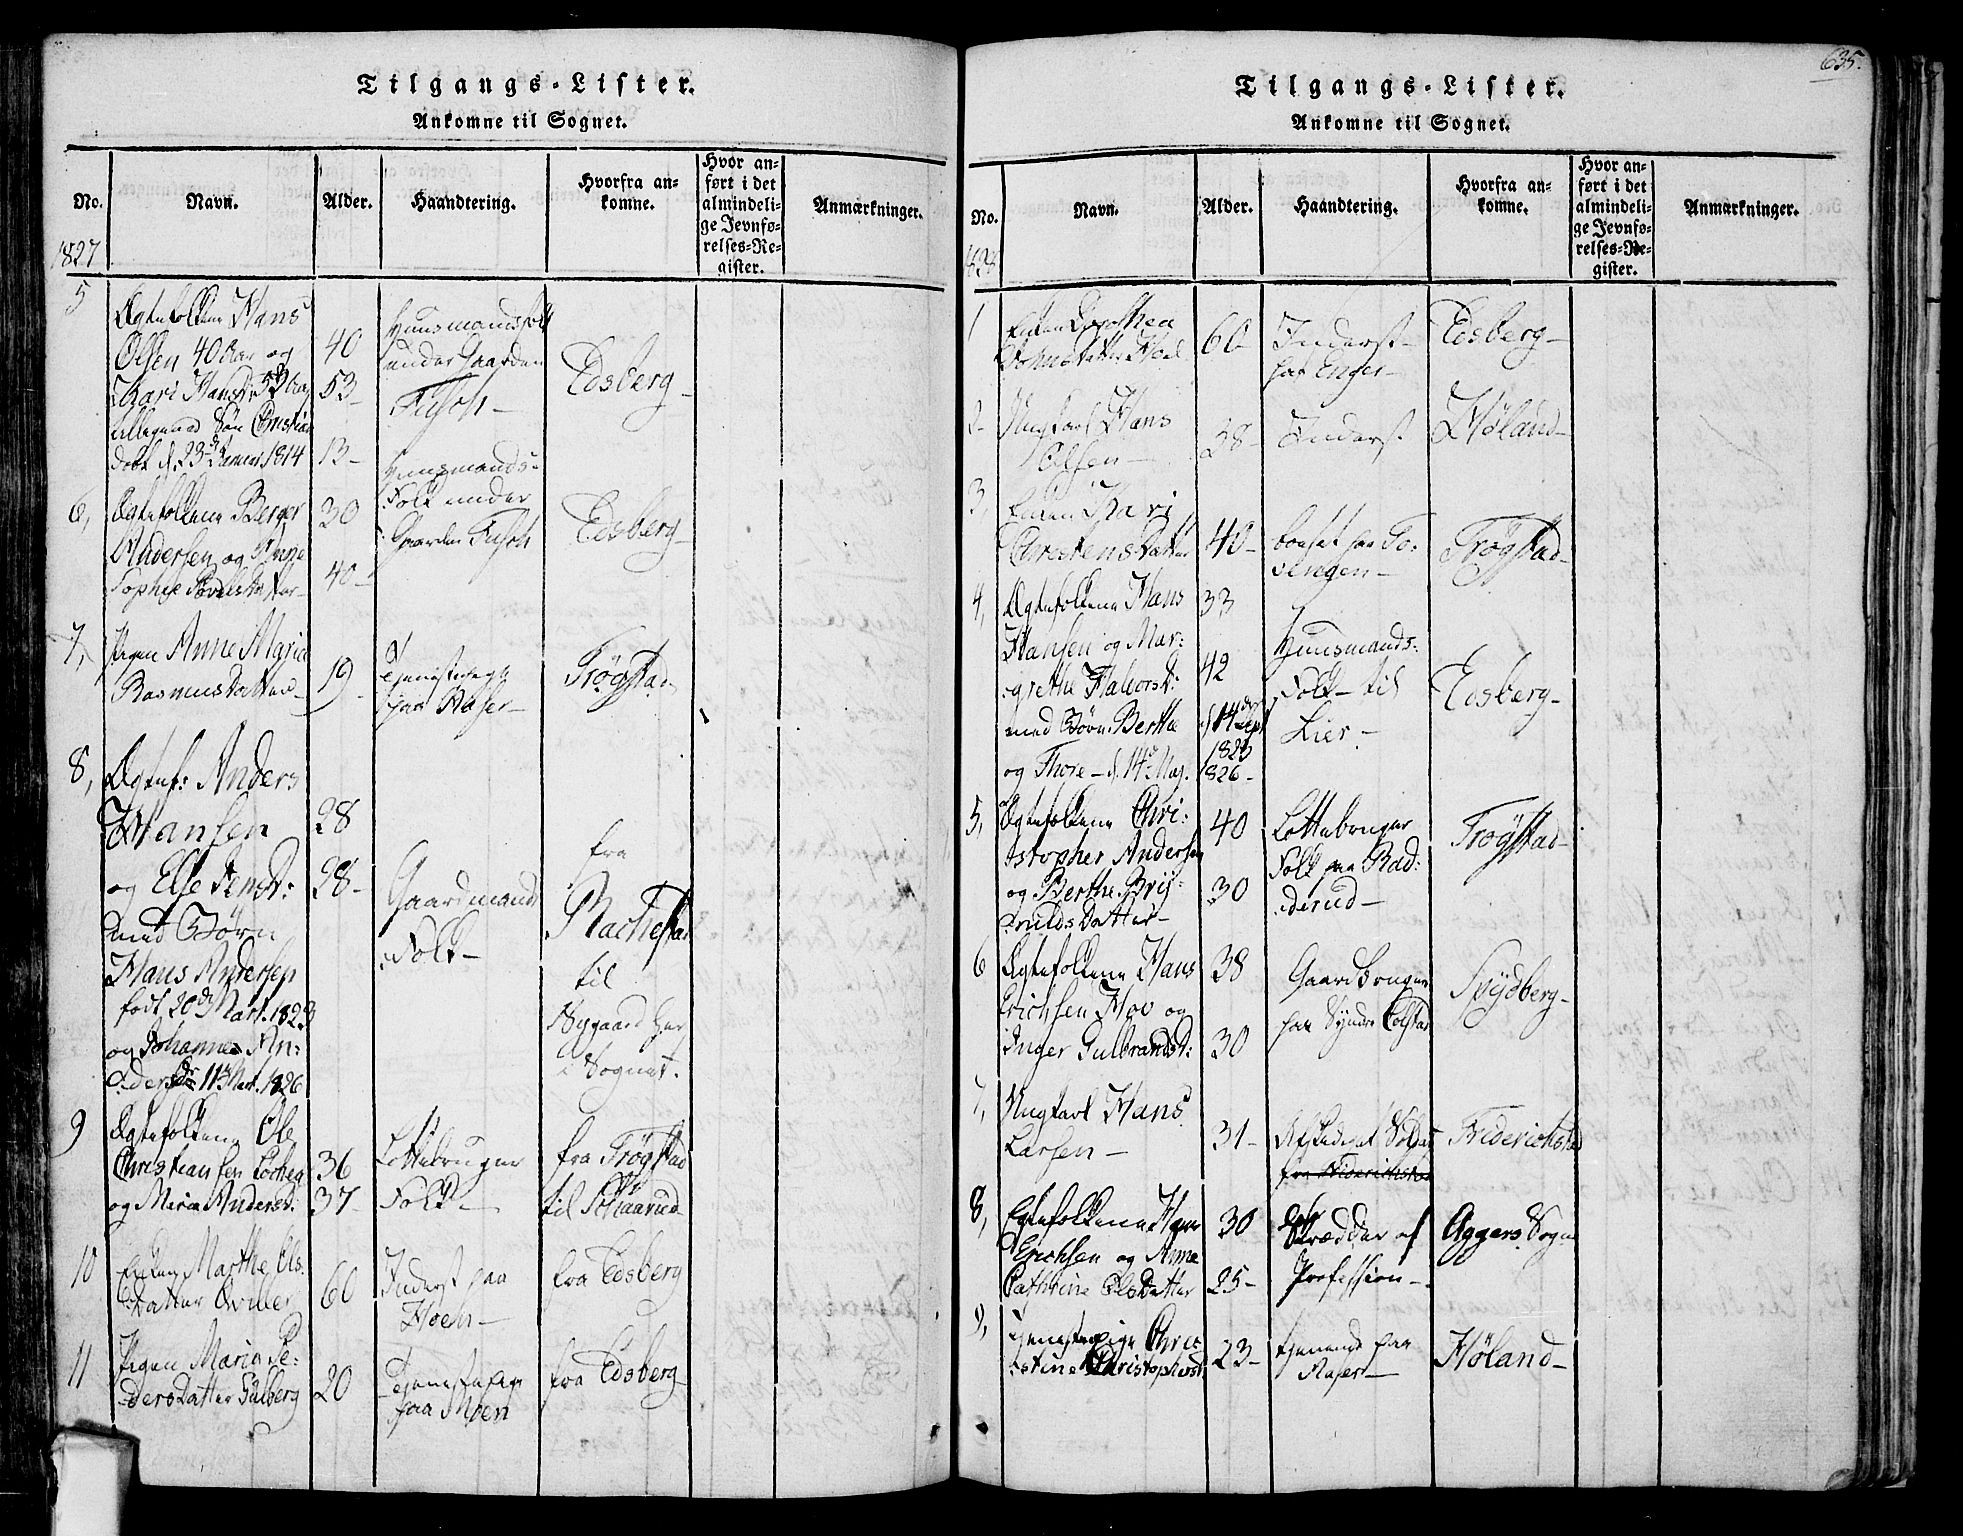 Tilgangs-Lister.
Ankomne til Sognet.
No.
Navn.
Alder.
Haandtering.
Hvorfra an-
komne.
Hvor an-
ført i det
almindeli-
ge Jevnfø-
relses-Re-
gister.
Anmærkninger.
1827
5
Ægtefolkene Hans
Olsen 40 Aar og
Kari Hansd: 53 Aar
Søn Christian
født d. 23de Januar 1814
40
53
13
Huusmandsfolk
under Gaarden
Edsberg
6,
Ægtefolkene Berger
Andersen og Anne
Sophie Povelsdatter
30
40
Huusmands-
Folk under
Gaarden
Edsberg
7,
Pigen Anne Maria
Rasmusdatter
19
Tjenestepige
paa Raser
Trøgstad
8,
Ægtef: Anders
Hansen
og Else Jensd:
med Børn
Hans Andersen
født 20de Mart. 1823
og Johannes An-
ders: 11 Mart. 1826
28
28
Gaardmands
Folk
fra
Rachestad
til
Nygaard her
i Sognet.
9
Ægtefolkene Ole
Christiansen
og Maria Andersd:
36
37
Lottebruger
Folk
fra Trøgstad
til
10
Enken Marthe Ols-
datter
60
Inderst paa
Hoen
fra Edsberg
11
Pigen Maria Pe-
dersdatter Gulberg
20
Tjenestepige
paa Moen
fra Edsberg
635.
Tilgangs-Lister.
Ankomne til Sognet.
No.
Navn.
Alder.
Haandtering.
Hvorfra an-
komne.
Hvor an-
ført i det
almindeli-
ge Jevnfø-
relses-Re-
gister.
Anmærkninger.
1828
1
Enken Dorothea
60
Inderst
paa Enger
Edsberg
2
Ungkarl Hans
Olsen
38
Inderst
Høland
3,
Enken Kari
Christensdatter
40
boesat paa To-
sengen
Trøgstad
4,
Ægtefolkene Hans
Hansen og Mar-
grethe Halvorsd:
med Børn Berthe
og Thore d. 14de Maj.
33
42
d. 14de Sept
1823
1826
Huusmands-
Folk til
Lier
Edsberg
5,
Ægtefolkene Chri-
stopher Andersen
og Berthe Bryn-
nildsdatter
40
30
Lottebruger
Folk paa Rad-
derud
Trøgstad
6
Ægtefolkene Hans
Erichsen Hov og
Inger Gulbrandsd:
38
30
Gaardbruger
paa Syndre Colstad
Spydberg
7,
Ungkarl Hans
Larsen
31
Afskediget Soldat
fra Friderichstad
Friderichstad
8,
Ægtefolkene Hans
Erichsen og Anne
Cathrine Olsdatter
30
25
Skrædder af
Profession
Aggers Sogn
9,
Tjenestepige Chri-
stine Christophersd:
23
tjenende paa
Raser
Høland